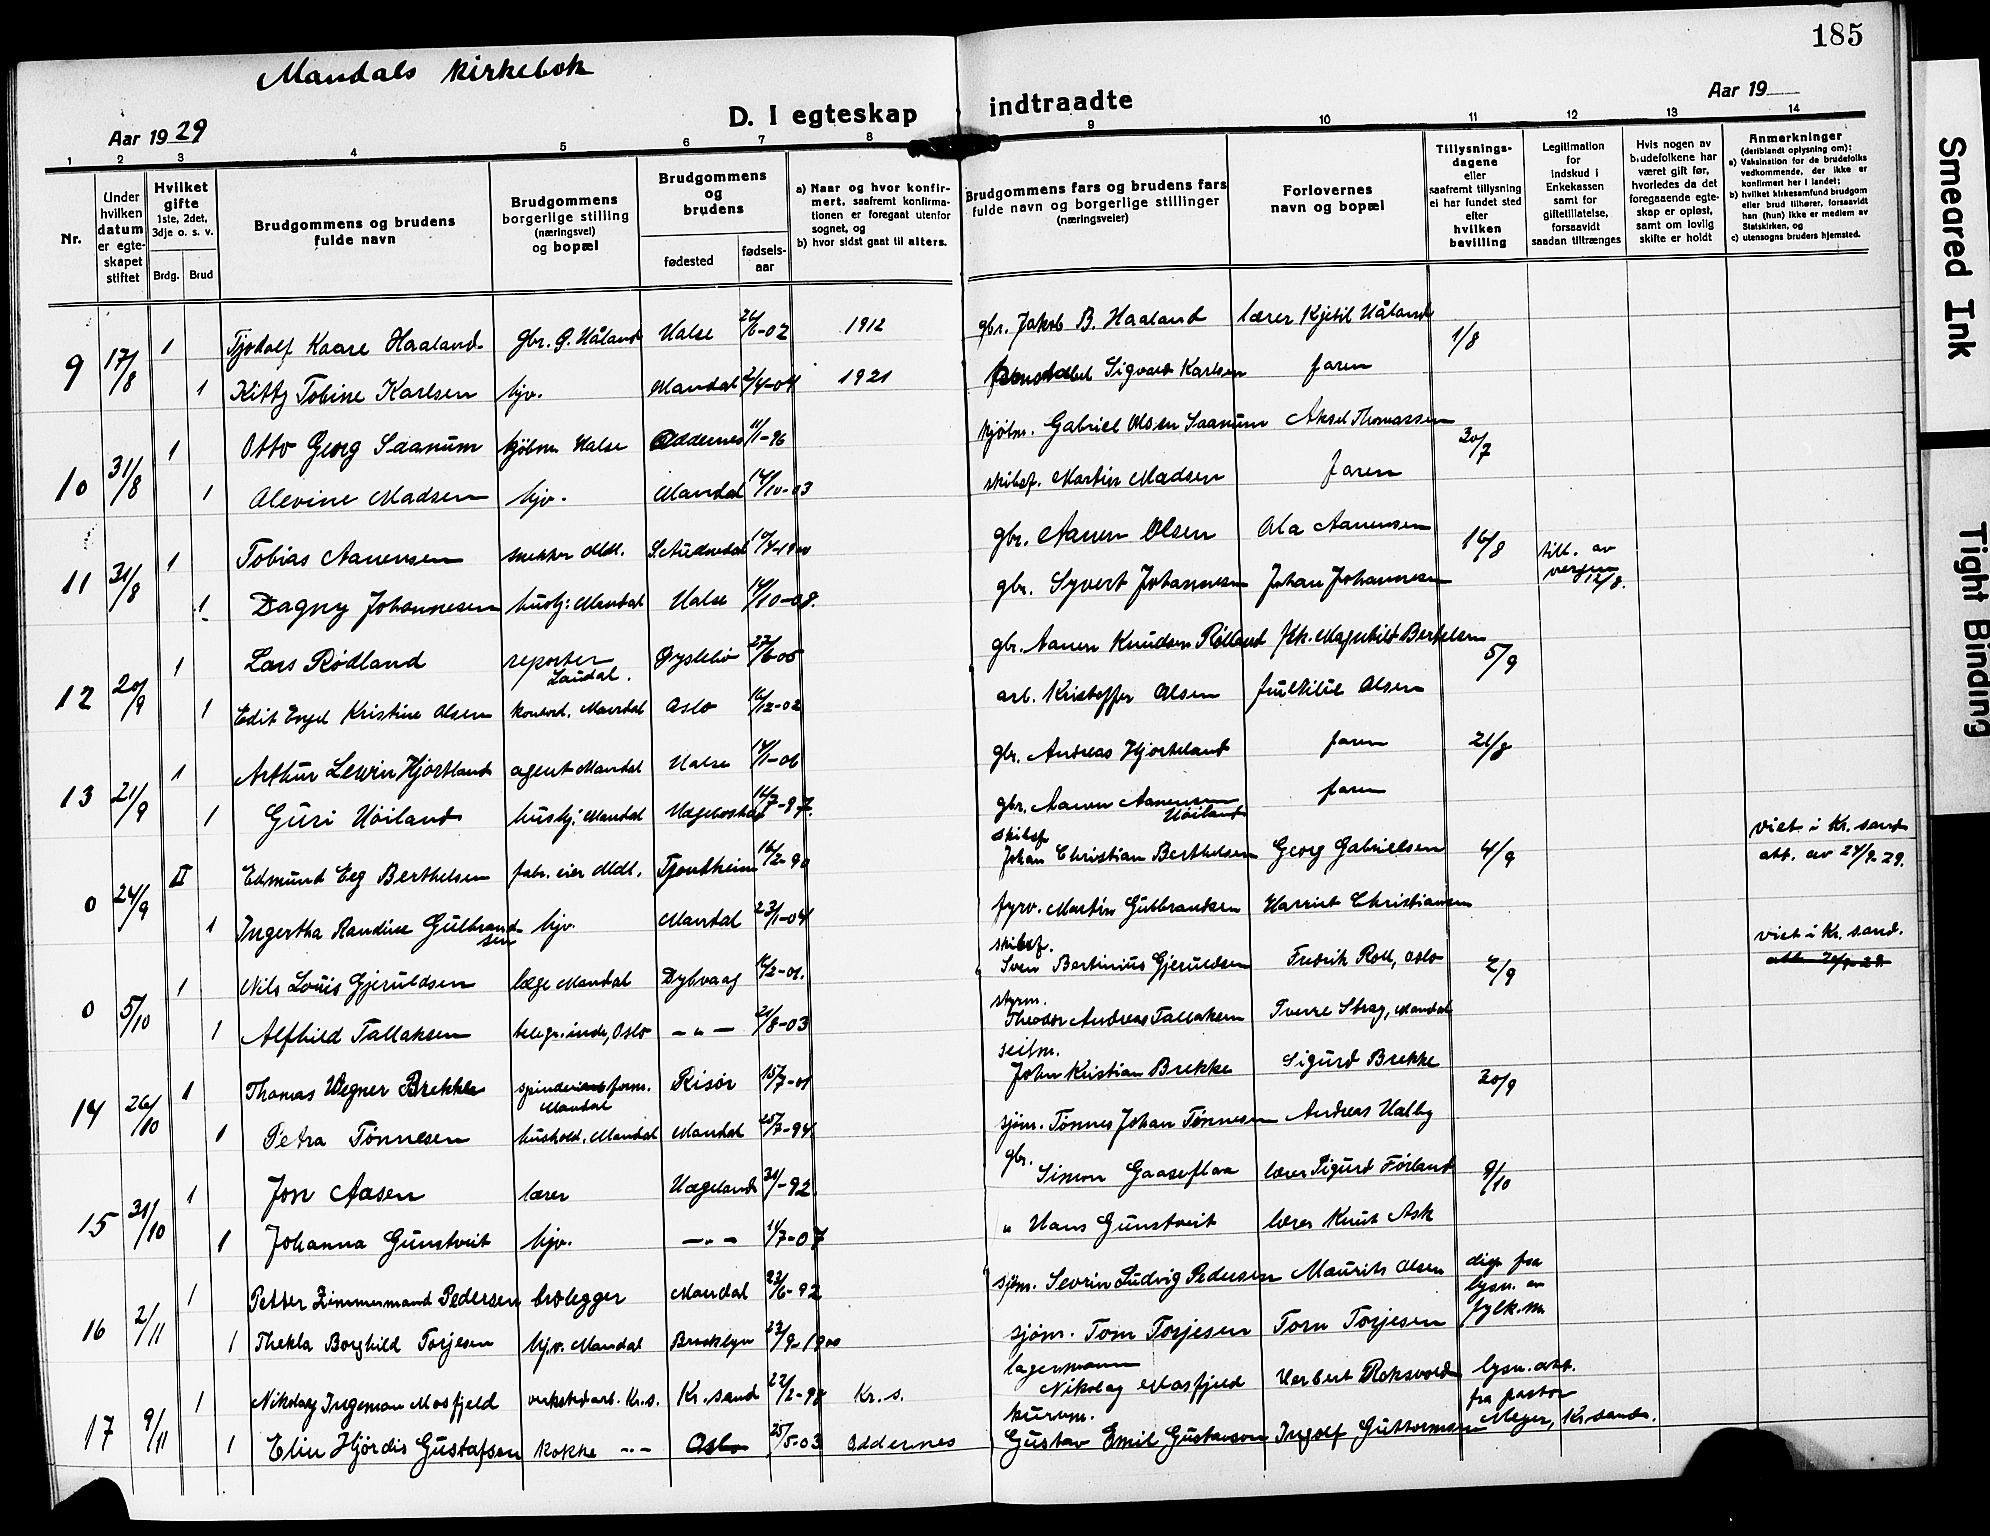 185
Mandals kirkebok
D. I egteskap indtraadte
Aar 1929
Aar 19
1 2 3 4 5 6 7 8 9 10 11 12 13 14
Nr.
Under hvilken datum er egteskapet stiftet
Hvilket gifte 1ste, 2det, 3dje o. s. v.
Brdg. Brud
Brudgommens og brudens fulde navn
Brudgommens borgerlige stilling (næringsvei) og bopæl
Brudgommens og brudens
fødested fødselsaar
a) Naar og hvor konfirmert, saafremt konfirmationen er foregaat utenfor sognet, og
b) hvor sidst gaat til alters.
Brudgommens fars og brudens fars fulde navn og borgerlige stillinger (næringsveier)
Forlovernes navn og bopæl
Tillysningsdagene eller saafremt tillysning ei har fundet sted efter hvilken bevilling
Legitimation for indskud i Enkekassen samt for giftetillatelse, forsaavidt saadan tiltrænges
Hvis nogen av brudefolkene har været gift før, hvorledes da det foregaaende egteskap er opløst, samt om lovlig skifte er holdt
Anmerkninger (deriblandt oplysning om):
a) Vaksination for de brudefolks vedkommende, der ikke er konfirmert her i landet;
b) hvilket kirkesamfund brudgom eller brud tilhører, forsaavidt han (hun) ikke er medlem av Statskirken, og
c) utensogns bruders hjemsted.
9 17/8 1 Tjodolf Kaare Haaland gbr. G. Håland Halse 26/6-02 1912 gbr. Jakob B. Haaland lærer Kjetil Håland 1/8
1 Kitty Tobine Karlsen hjv. Mandal 2/4-04 1921 Sigvard Karlsen faren
10 31/8 1 Otto Georg Saanum kjøbm. Halse Oddernes 11/1-96 kjøbm. Gabriel Olsen Saanum Aksel Thomassen 30/7
1 Alevine Madsen hjv. Mandal 14/10-03 skibsf. Martin Madsen faren
11 31/8 1 Tobias Aanensen snekker Mdl. S. Audnedal gbr. Aanen Olsen Ola Aanensen 16/8 till. av vergen 12/8.
1 Dagny Johannesen hushj. Mandal Halse 14/10-08. gbr. Syvert Johannesen Johan Johannesen
12 20/9 1 Lars Rødland reporter Laudal. Øyslebø 27/6-05 gbr. Aanen Knudsen Rølland frk. Magnhild Bertelsen 5/9
1 Edit Engel Kristine Olsen kontord. Mandal Oslo 16/12-02 arb. Kristoffer Olsen Olsen
13 21/9 1 Arthur Lewin Hjortland agent Mandal Halse 14/1-06 gbr. Andreas Hjorteland faren 21/8
1 Guri Høiland hushj. Mandal Hægebostad 16/7-97. gbr. Aanen Aanensen Høiland faren
0 24/9 II Edmund Eeg Berthelsen fabr. eier Mdl. Trondheim 16/2-90 skibsf. Johan Christian Berthelsen Georg Gabrielsen 4/9 viet i Kr. sand att. av 24/9-29.
1 Ingertha Randine Gulbrandsen hjv. Mandal 23/1-04 fyrv. Martin Gulbrandsen Harriet Christiansen
0 5/10 1 Nils Louis Gjeruldsen læge Mandal Dybvaag 16/2-01. skibsf. Sven Bertinius Gjeruldsen Fredrik Roll, Oslo 2/9 viet i Kr. sand.
1 Alfhild Tallaksen telegr. inde, Oslo —"— 21/8-03 styrm. Theodor Andreas Tallaksen Sverre Strag, Mandal
14 26/10 1 Thomas Wegner Brekke Mandal Risør 15/7-01 seilm. John Kristian Brekke Sigurd Brekke 20/9
1 Petra Tønnesen hushold. Mandal Mandal 25/7-94 sjøm. Tønnes Johan Tønnesen Andreas Halby
15 31/10 1 Jon Aasen lærer Hægeland -92. gbr. Simon Gaaseflaa lærer Sigurd Førland 9/10
1 Johanna Gunstveit hjv. —"— 14/7-07 " Hans Gunstveit lærer Knut Ask
16 2/11 1 Petter Zimmermand Pedersen brolegger Mandal 23/6-92 sjøm. Sevrin Ludvig Pedersen Maurits Olsen disp. fra lysn. av fylk.m.
1 Thekla Borghild Torjesen hjv. Mandal Brooklyn 23/9-1900 sjøm. Tom Torjesen Tom Torjesen
17 9/11 1 Nikolay Ingeman Mosfjeld verkstedarb. Kr.s. Kr. sand 22/2-98 Kr. s. lagermann Nikolay Mosfjeld Herbert Roksvold lysn. att. fra pastor Meyer, Kr. sand.
1 Elin Hjørdis Gustafsen kokke —"— Oslo 25/5-03 Oddernes kurvm. Gustav Emil Gustavson Ingolf Guttormsen
Smeared Ink
Tight Binding